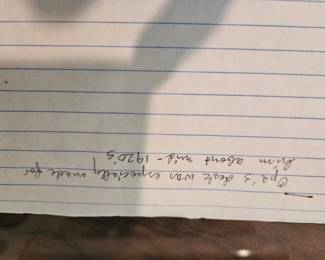 Opa's desk was especially made for
him about mid-1920's